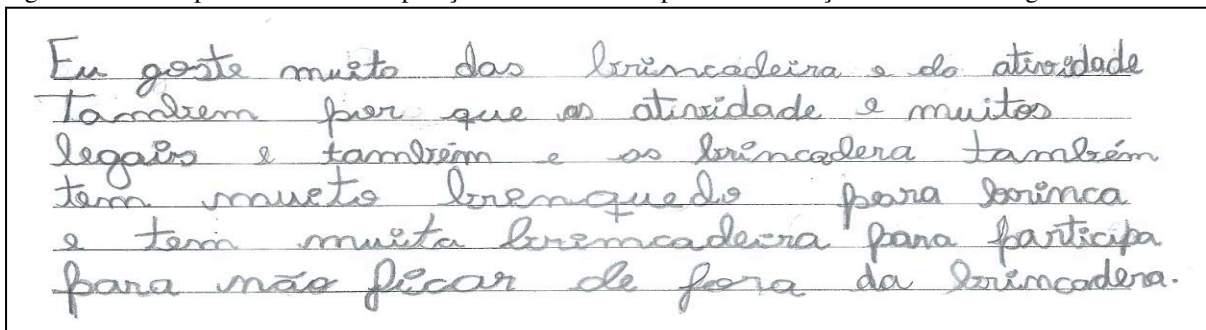 Eu goste muito das brincadeira e do atividade
Tambem por que as atividade e muitos
legais e também e as brincadera também
tem mueto brenquedo para brinca
e tem muita brimcadeira para participa
para não ficar de fora da brincadera.